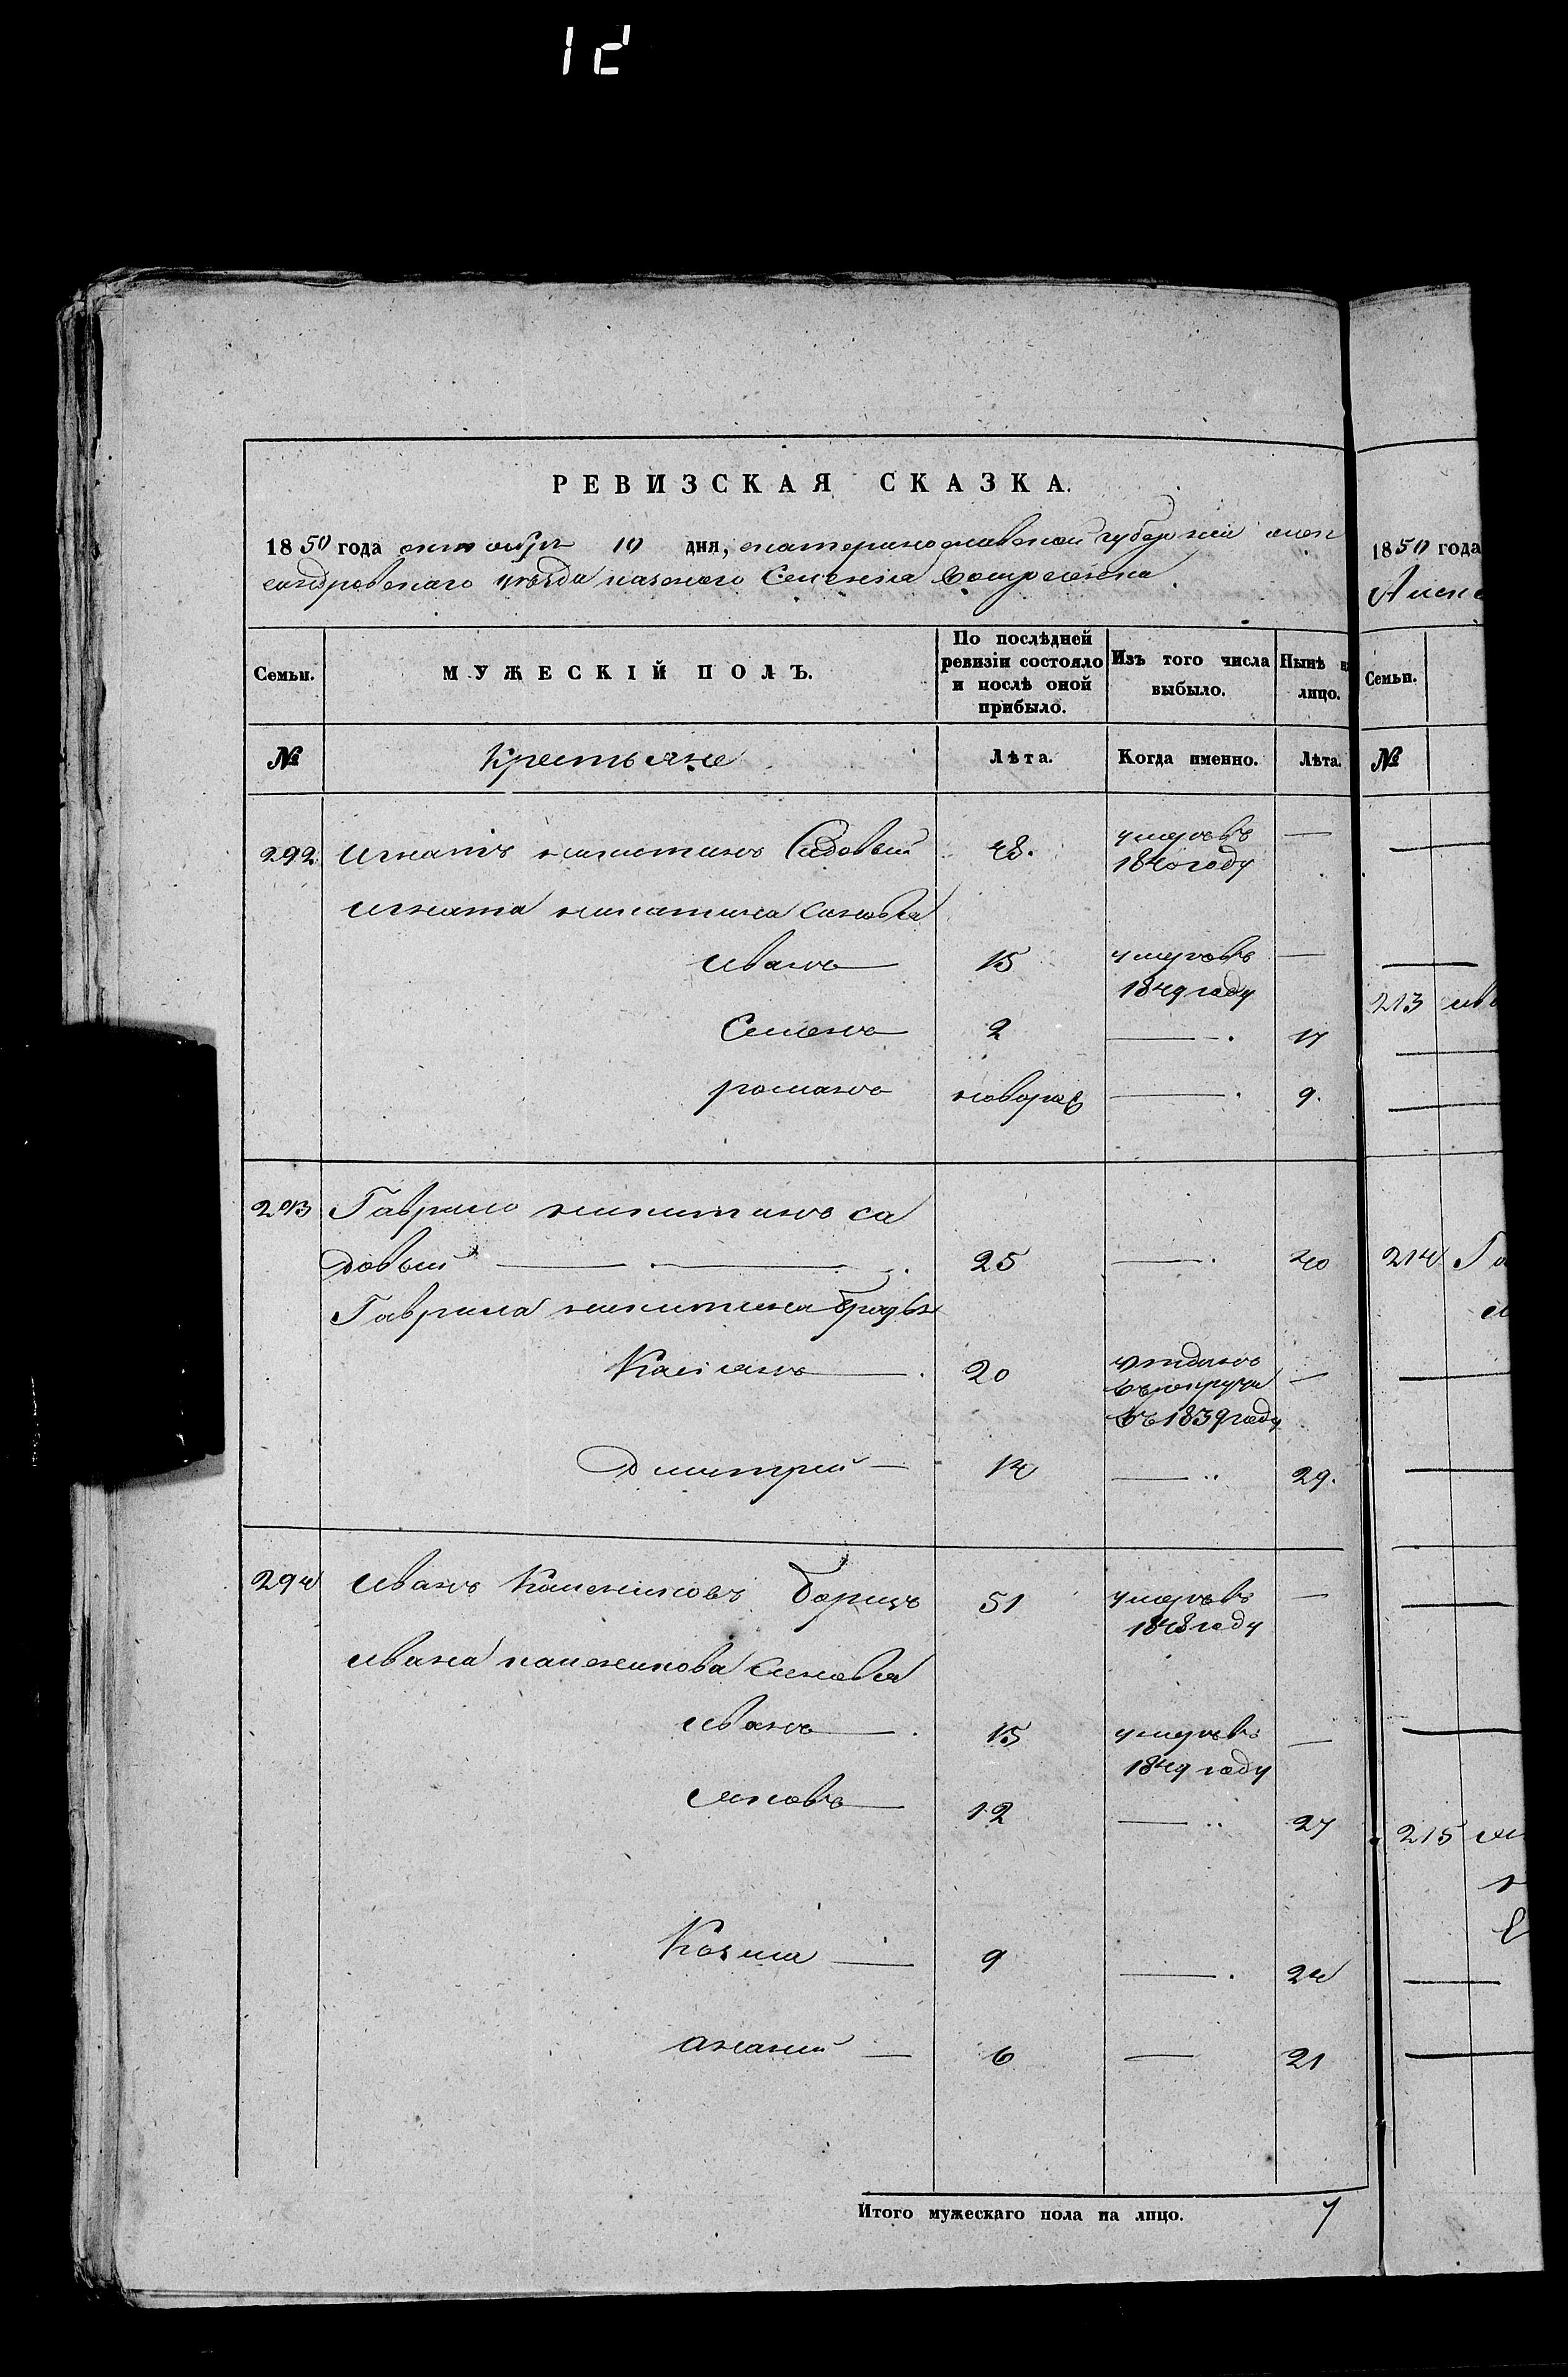 12
РЕВИЗСКАЯ СКАЗКА.
1850 года октября 10 дня, екатеринославской губернии алек
сандровскаго уезда казеного Селения
Семьи. МУЖЕСКІЙ ПОЛЪ. По послѣдней ревизіи состояло и послѣ оной прибыло. Изъ того числа выбыло. Нынѣ на лицо.
№ Крестьяне Лѣта. Когда именно. Лѣта.
292 игнатъ никитинъ Садовый 48. умеръ въ —
1840 году
игната никитина Синовья
иванъ 15 умеръ въ —
1849 году
Семенъ 2 — 17
романъ новорож — 9.
293 Гаврило никитинъ са
довый 25 — 40
Гаврила никитина братья
Касіянъ 20 отданъ —
въ рекруты
въ 1839 году
Дмитрий 14 — 29.
294 иванъ Калениковъ Борецъ 51 умеръ въ —
1848 году
ивана каленикова Синовья
иванъ 15 умеръ въ —
1849 году
яковъ 12 — 27
Козма 9 — 24
ананий 6 — 21
Итого мужескаго пола на лицо. 7
1850 года
Алекс
Семьи.
№
213 ив
214 Га
215